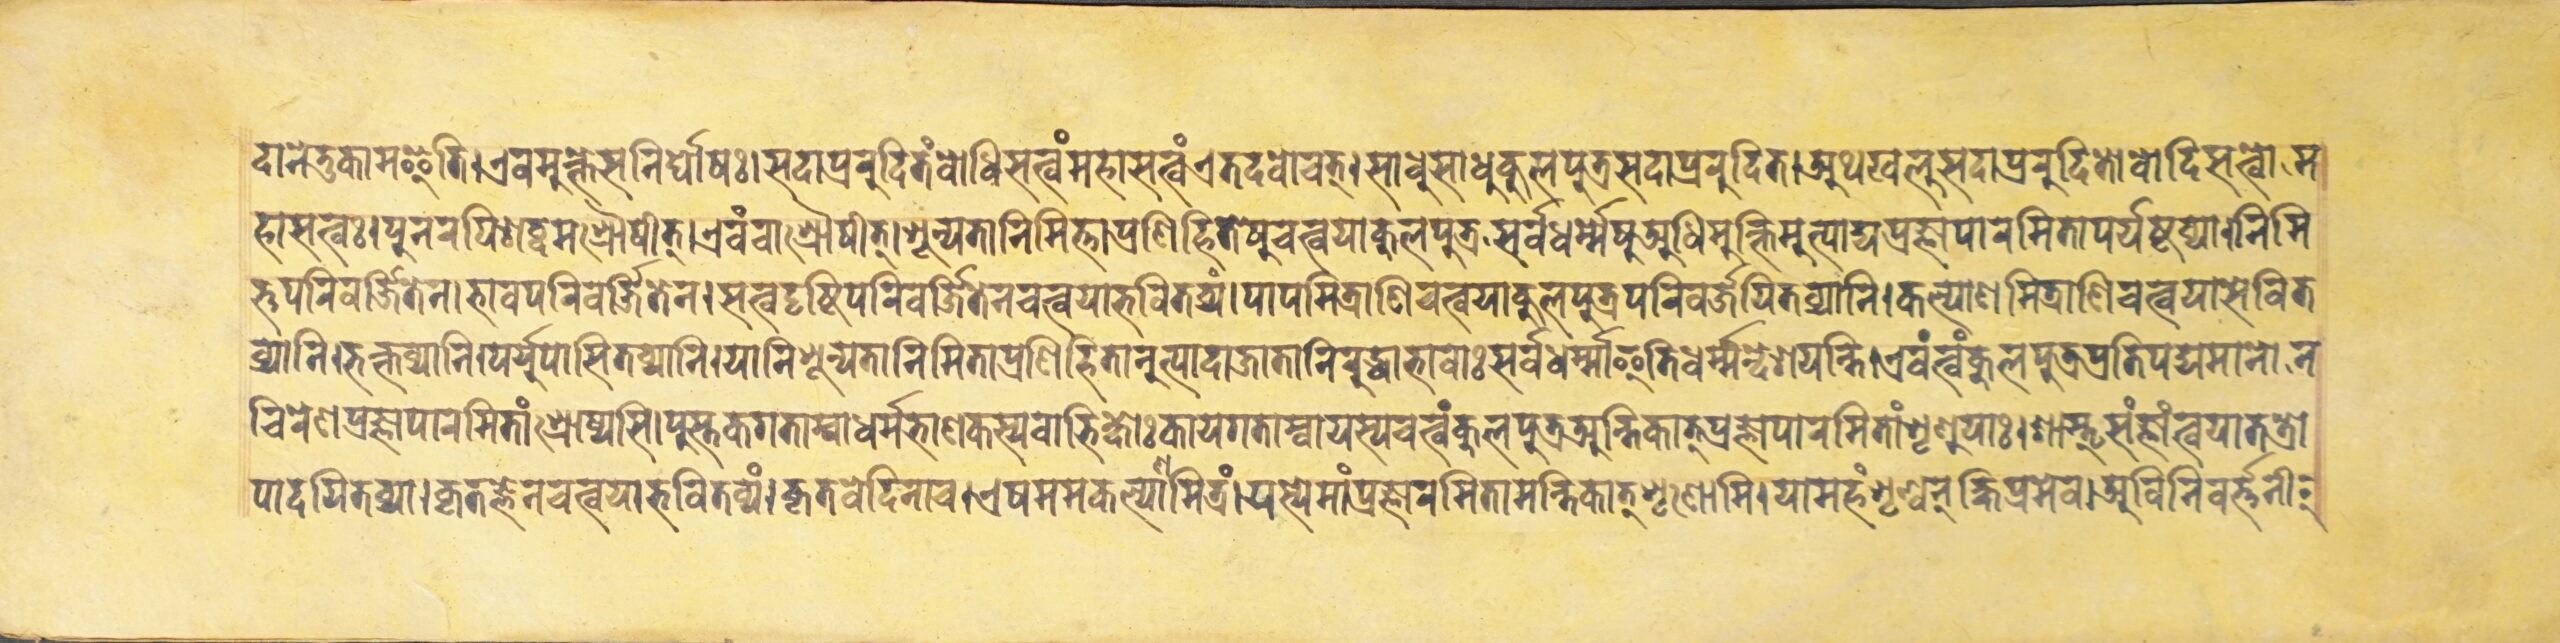 दानेतुकामइति।एवमुक्तेसनिर्घोषः।सदाप्ररुदितंबोधिसत्वंमहासत्वंएतदवोचत्।साधुसाधुकुलपुत्रसदाप्ररुदित।अथखलुसदाप्ररुदितोबोदिसत्वोम
हासत्वः।पुनरपिशब्दमश्रौषीत्।एवंचाश्रौषीत्।शून्यतानिमित्ताप्रणिहितेषुचत्वयाकुलपुत्रसर्वधर्म्मेषुअधिमुक्तिमुत्पाद्यप्रज्ञापारमितापर्येष्टव्या।निमि
त्तपरिवर्जितेन।भावपरिवर्जितेन।सत्वदृष्टिपरिवर्जितेनचत्वयाभवितव्यं।पापमित्राणिचत्वयाकुलपुत्रपरिवर्जयितव्यानि।कल्याणमित्राणिचत्वयासेवित
व्यानि।भक्तव्यानि।पर्युपासितव्यानि।यानिशून्यतानिमिताप्रणिहितानुत्पादाजातानिरुद्धाभावाःसर्वधर्म्माइतिधर्म्मन्देशयन्ति।एवंत्वंकुलपुत्रप्रतिपद्यमानोन
चिरेणप्रज्ञापारमितांश्रोष्यसि।पुस्तकगताम्वाधर्मभाणकस्यवाभिक्षोःकायगताम्वायस्यचत्वंकुलपुत्रअन्तिकात्प्रज्ञापारमितांशृणुयाः।शास्तृसंज्ञांत्वयातत्रो
पादयितव्या।कृतज्ञेनचत्वयाभवितव्यं।कृतवेदिनाच।एषममकल्याणमित्रं।यस्येमांप्रज्ञारमितामन्तिकात्शृणोमि।यामहंशृण्वन्क्षिप्रमेव।अविनिवर्त्तनीर्